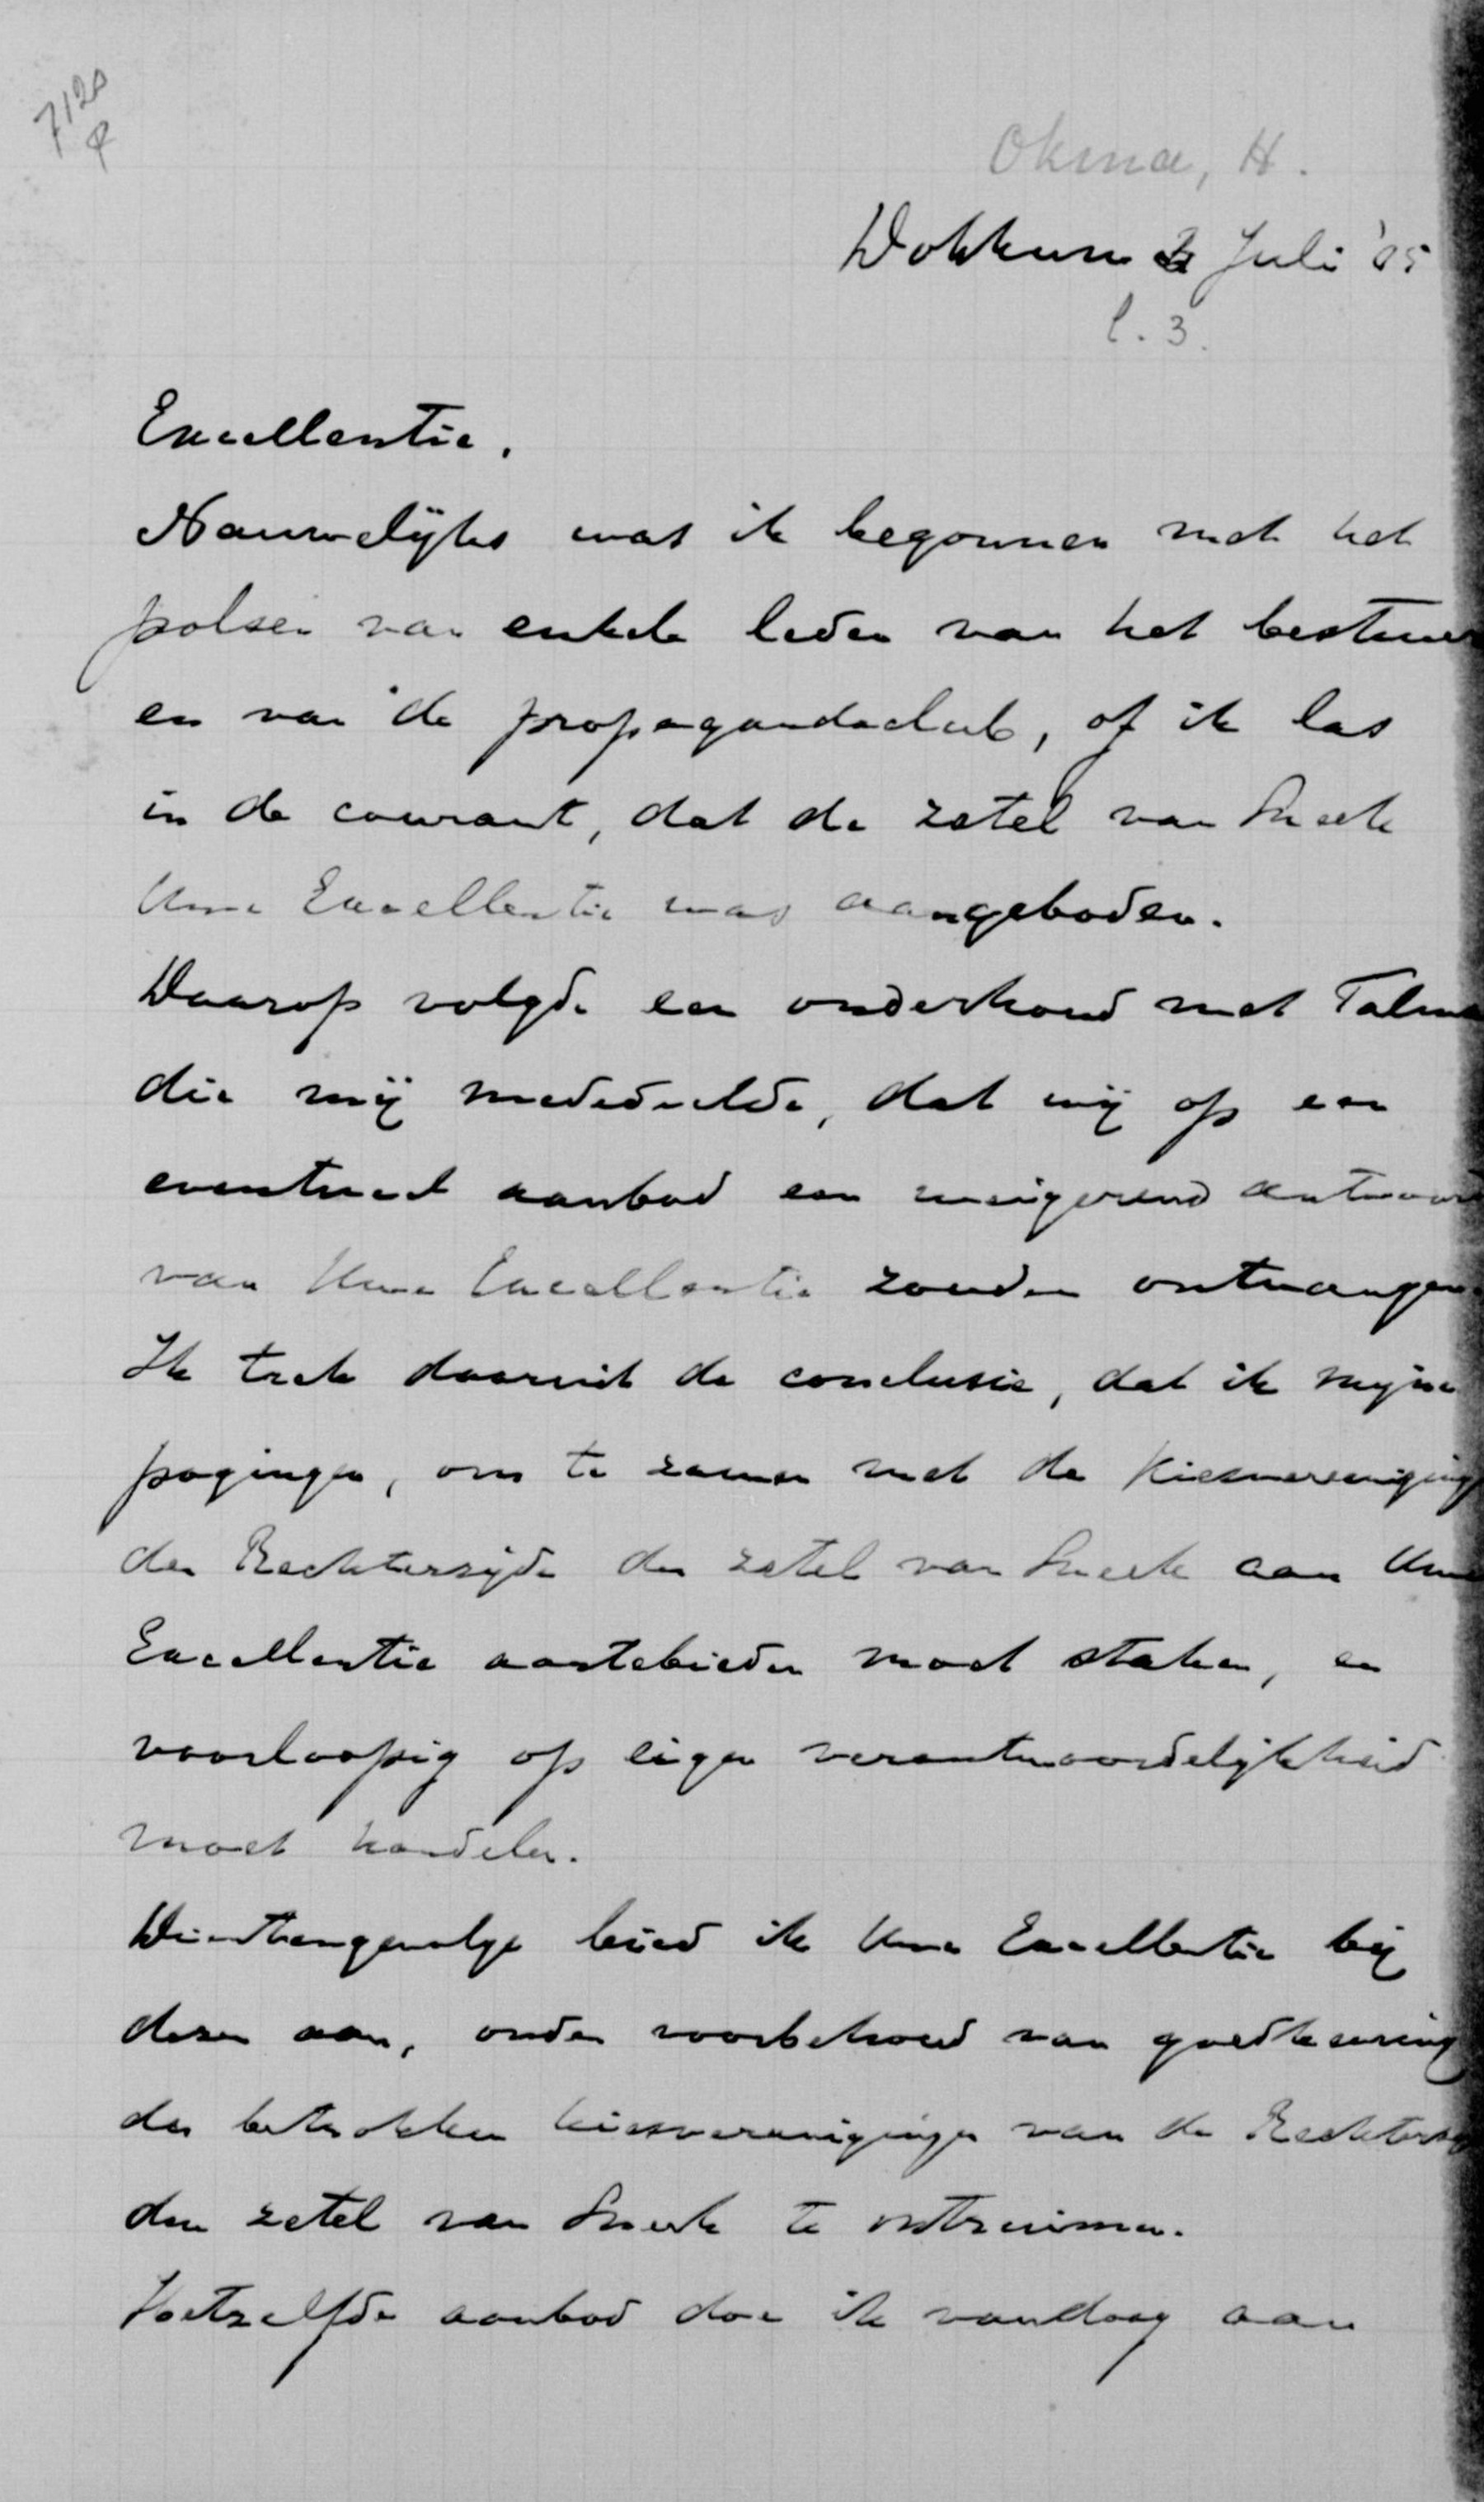 7120
Okma, H.
Dokkum 3 Juli '05
l. 3.
Excellentie.
Nauwelijks was ik begonnen met het
polsen van enkele leden van het bestuur
en van de propagandaclub, of ik las
in de courant, dat de zetel van Sneek
Uwe Excellentie was aangeboden.
Daarop volgde een onderhoud met Talma
die mij mededeelde, dat wij op een
eventueel aanbod een weigerend antwoord
van Uwe Excellentie zouden ontvangen.
Ik trek daaruit de conclusie, dat ik mijne
pogingen, om te zamen met de Kiesvereeniging
der Rechterzijde den zetel van Sneek aan Uwe
Excellentie aantebieden moet staken, en
voorloopig op eigen verantwoordelijkheid
moet handelen.
Dientengevolge bied ik Uwe Excellentie bij
dezen aan, onder voorbehoud van goedkeuring
der betrokken kiesvereenigingen van de Rechterzij
den zetel van Sneek te ontruimen.
Hetzelfde aanbod doe ik vandaag aan